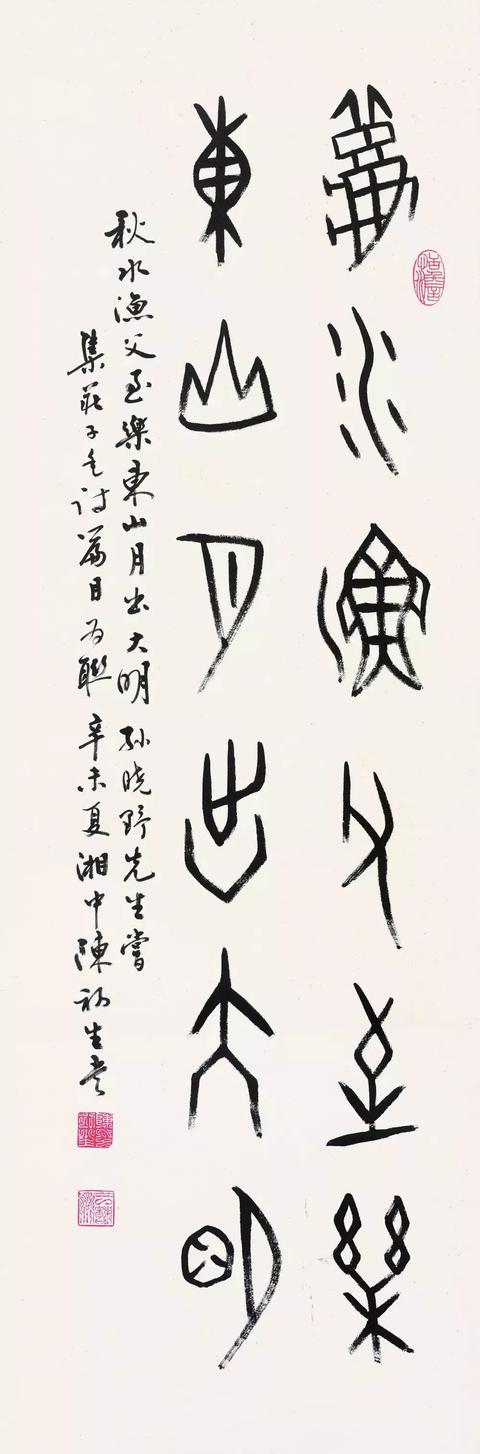 秋水漁父至樂
東山月出大明
秋水漁父至樂東山月出大明 孫曉野先生嘗
集莊子毛詩篇目為聯 辛未夏湘中陳初生書